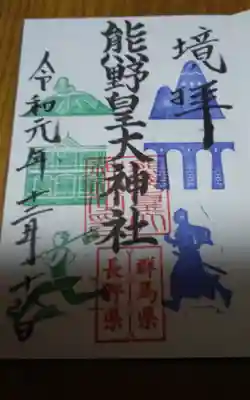 境拝
熊野皇大神社
群馬県
長野県
令和元年十二月十一日